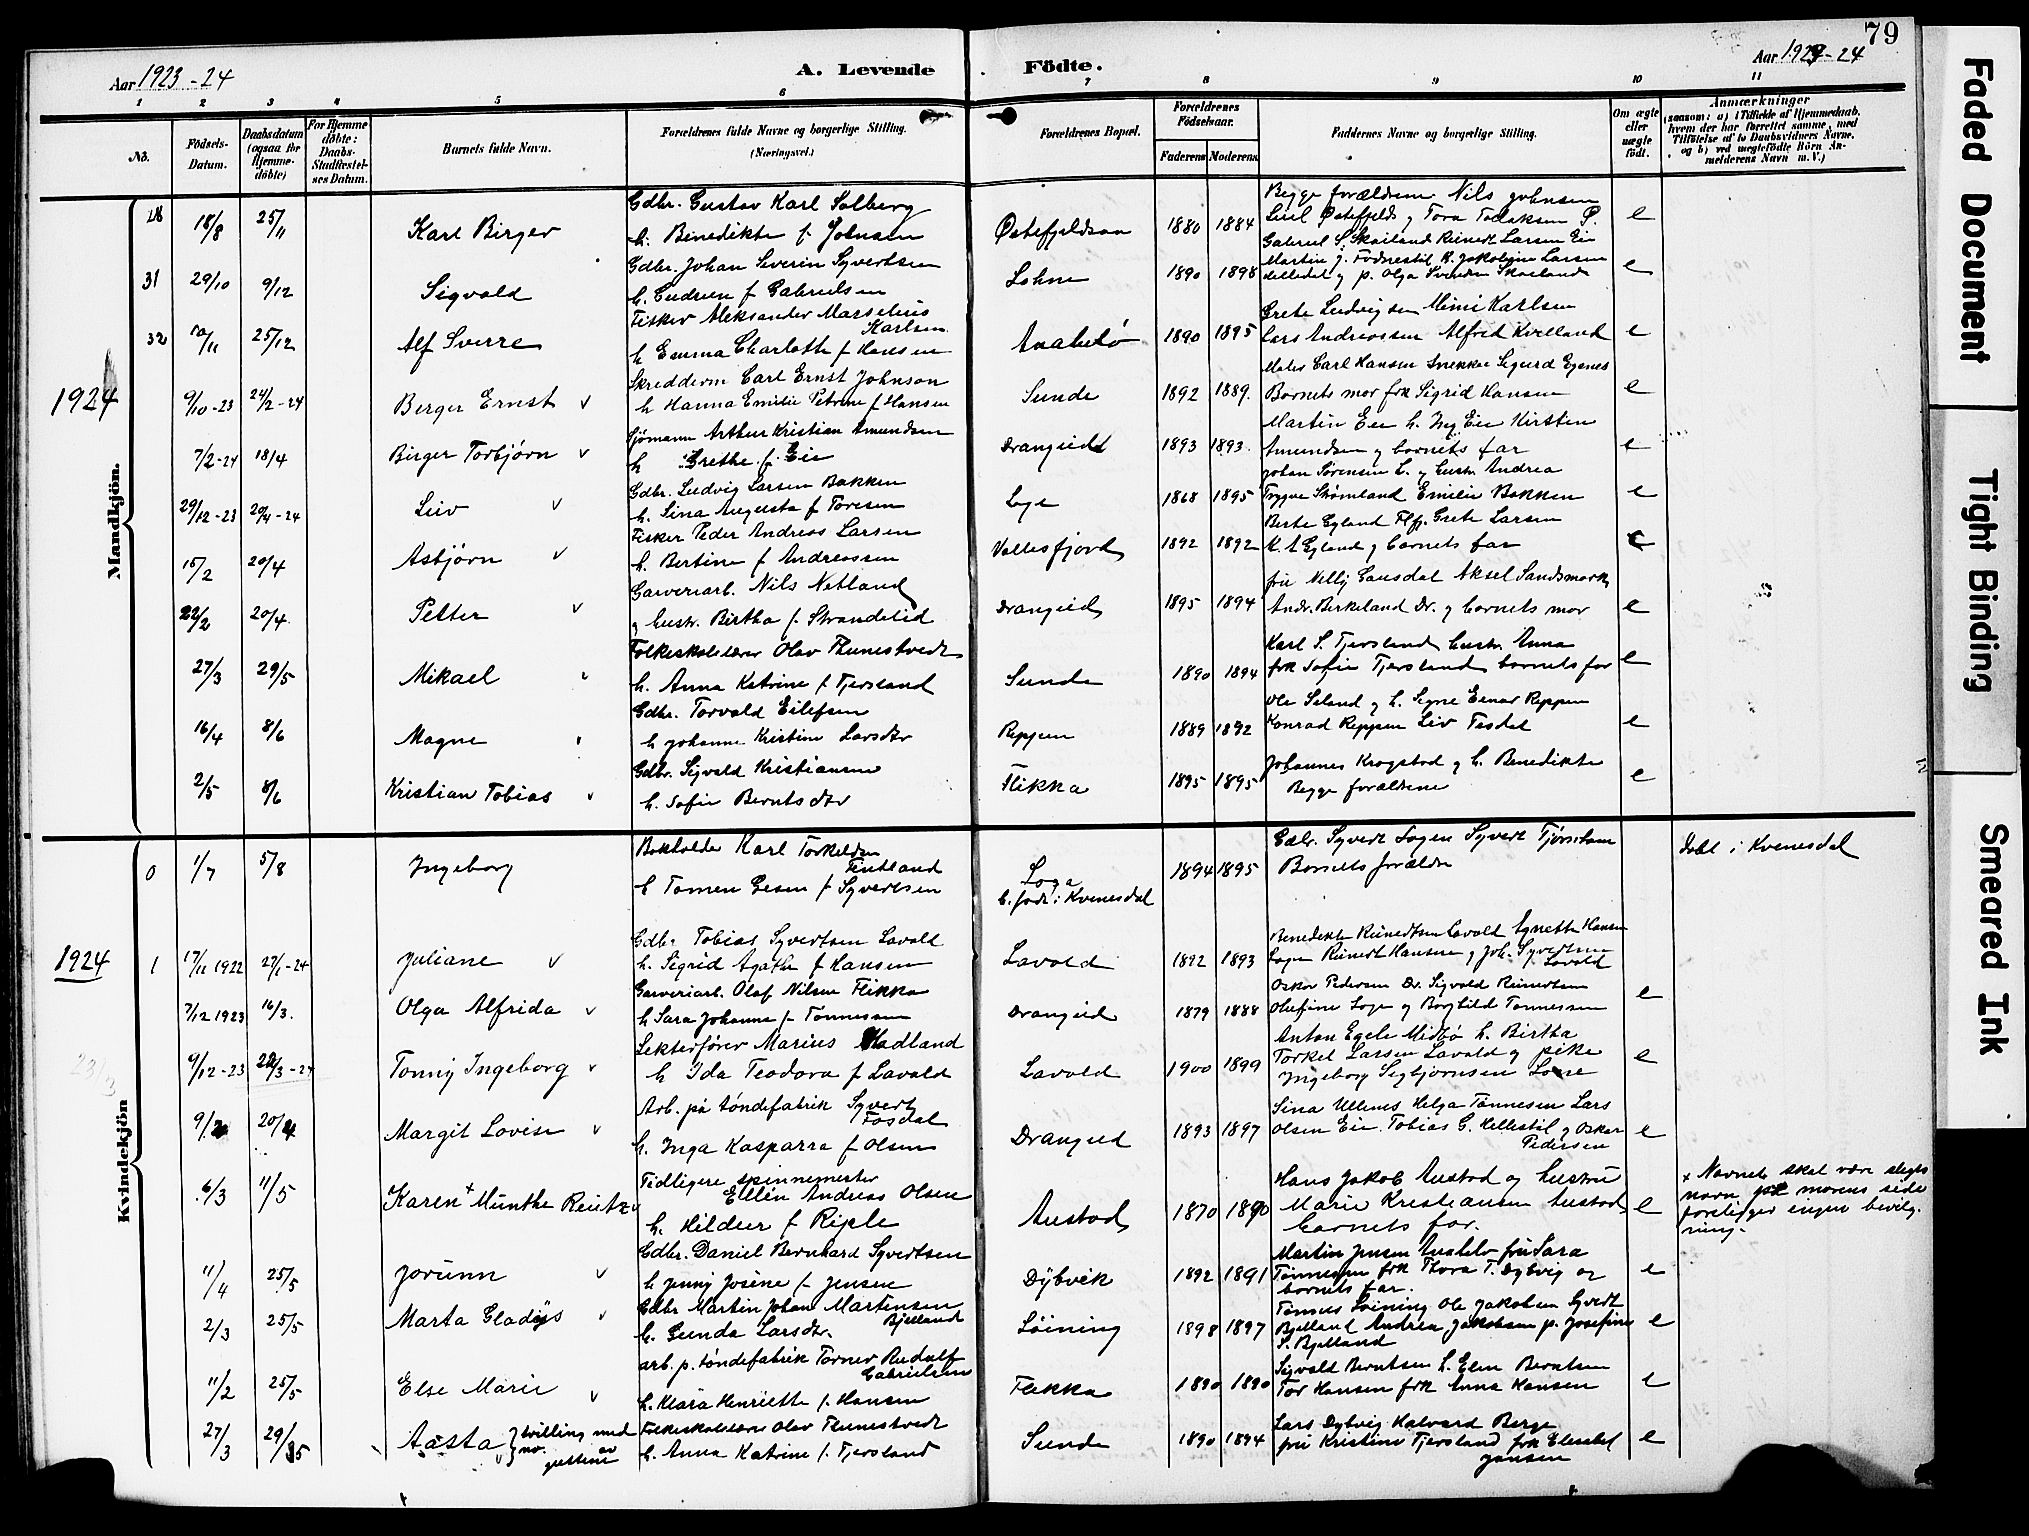 79
Aar 1923-24
A. Levende Födte.
Aar 1924-24
1 2 3 4 5 6 7 8 9 10 11
No.
Födsels-Datum.
Daabsdatum (ogsaa for Hjemme-döbte)
For Hjemme döbte: Daabs-Stadfæstelses Datum.
Barnets fulde Navn.
Forældrenes fulde Navne og borgerlige Stilling. (Næringsvei.)
Forældrenes Bopæl.
Forældrenes Födselsaar.
Faderens Moderens
Faddernes Navne og borgerlige Stilling.
Om ægte eller uægte födt.
Anmærkninger
(saasom: a) i Tilfælde af Hjemmedaab, hvem der har forrettet samme, med Tilföielse af to Daabsvidners Navne, og b) ved uægtefödte Börn Anmelderens Navn m. V.)
Mandkjön.
18/8 25/11 Karl Birger Gdbr. Gustav Karl Solberg
h. Benedikte f. Johnsen 1880 1884 Begge forældrene Nils Johnsen
e
31 29/10 9/12 Sigvald Gdbr. Johan Severin Syvertsen
h. Gudrun f. Gabrielsen Lohne 1890 1898 e
32 10/11 25/12 Alf Sverre Fisker Aleksander Marselius Karlsen
h Emma Charlotte f Hansen Anabelø 1890 1895 Grete Ludvigsen Mimi Karlsen
Lars Andreassen Alfred Kvelland e
1924
9/10-23 24/2-24 Berger Ernst v Skredderm Carl Ernst Johnson
h Hanna Emilie Petrine f Hansen Sunde 1892 1889. Maler Carl Hansen Snekker Sigurd Egenes
Barnets mor frk Sigrid Hansen e
7/2-24 18/4 Birger Torbjørn v Sjømann Arthur Kristian Amundsen
h Grethe f. Eie Drangeid 1893 1893. Martin Eie h. Inge Eie Kirsten
Amundsen og barnets far e
29/12-23 20/4-24 Leiv v Gdbr. Ludvig Larsen Bakken
h. Lina Augusta f Toresen Loge 1868 1895 Johan Sørensen L. og hustr. Andrea
Trygve Strømland Emilie Bakken e
15/2 20/4 Asbjørn v Fisker Peder Andreas Larsen
h. Bertine f Andreassen 1892 1892 Berte Egland Flfj. Grete Larsen
K. A Egland og barnets far e
22/2 20/4 Petter v Garveriarb. Nils Netland
og hustr. Birtha f. Strandelid Drangeid 1895 1894 fru Nelly Gausdal Aksel Sandsmark
Andr. Birkeland Dr. og barnets mor e
27/3 29/5 Mikael Folkeskolelærer Olav Tunestvedt
h. Anna Katrine f Tjersland Sunde 1890 1894 Karl S. Tjersland hustr. Anna
frk Sofie Tjersland barnets far e
16/4 8/6 Magne Gdbr. Torvald Eilefsen
h Johanne Kristine Larsdtr Reppen 1889 1892 Ole Seland og h. Signe Einar Reppen
Konrad Reppen Liv Tesdal e
2/5 8/6 Kristian Tobias v Gdbr. Sigvald Kristiansen
h. Sofie Berntsdtr Flikka 1895 1895 Johannes Krogstad og h. Benedikte
Begge forældrene e
Kvindekjön
0 1/7 5/8 Ingeborg Bokholder Karl Torkeldsen Fintland
Loga
b. født i Kvenesdal 1894 1895 Gdbr. Syvert Logen Syvert Tjørnhom
Barnets forældre
Døbt i Kvenesdal
1924
1 17/11 1922 27/1-24 Juliane v Gdbr Tobias Syvertsen Lavold
h. Sigrid Agathe f Hansen Lavold 1892 1893 Benedikte Reinertsen Lavold Agnette Hansen
Loge Reinert Hansen og Joh. Syvertsen Lavold
7/12 1923 16/3. Olga Alfrida v Garveriarb. Olaf Nilsen Flikka
h Sara Johanne f. Tønnessen Drangeid 1879 1888 Oskar Pedersen Dr. Sigvald Reinertsen
Olufine Loge og Borghild Tønnessen e
9/12-23 Tonny Ingeborg v Lektorfører Marius Hadland
h Ida Teodora f Lavold Lavold 1900 1899 Anton Egele Midbø h. Birtha
Torkel Larsen Lavold og pike
Ingeborg Segbjørnsen e
20/4 Margit Lovise v Arb. på tøndefabrik Syvert Fosdal
h. Inga Kasparra f Olsen Drangeid 1893 1897 Sina Ullenes Helga Tønnesen Lars
Olsen Eie. Tobias G. Hellestøl og Oskar Pedersen e
6/3 11/5 Karen + Munthe Reutz v Tidligere spinnemester
Ellen Andreas Olsen
h. Hildur f Riple Austad 1870 1890 Hans Jakob Austad og hustru
Marie Kristiansen Austad
barnets far. e
+ Navnet skal være slegts
navn på morens side
foreligger ingen bevilg-
ning.
11/4 25/5 Jorunn v Gdbr. Daniel Bernhard Syvertsen
h Jenny Josine f. Jensen Dybvik 1892 1891 Martin Jensen Anabelø fru Sara
Tønnesen frk Thora T. Dybvig og
barnets far. e
2/3 25/5 Marta Gladys v Gdbr Martin Johan Martensen Bjelland
h. Gunda Larsdtr. Löining 1898 1897 Tønnes Löining Ole Jakobsen Syvert
Bjelland Andrea Jakobsen p. Josefine
S. Bjelland e
11/2 25/5 Else Marie v arb. p. tøndefabrik Torner Rudolf Gabrielsen
h. Klara Henriette f. Hansen Flekka 1890 1890 Sigvald Berntsen h. Elen Berntsen
Tor Hansen frk Anna Hansen e
27/3 29/5 Aasta v tvilling med no. av guttene Folkeskolelærer Olav Tunestvedt
h. Anna Katrine f. Tjersland Sunde 1890 1894 Lars Dybvig Halvard Berge
fru Kristine Tjersland frk Elisabet Jansen e
Faded Document
Tight Binding
Smeared Ink